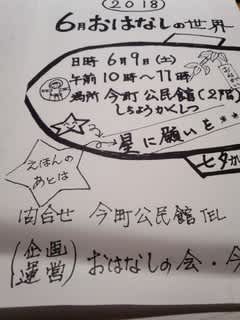 2018
6月おはなしの世界
日時 6月9日(土)
午前 10時〜11時
場所 今町公民館(2階)
しちょうかくしつ
星に願いを
えほんの
あとは
七夕
問合せ 今町公民館 TEL
(企画
運営) おはなしの会・今